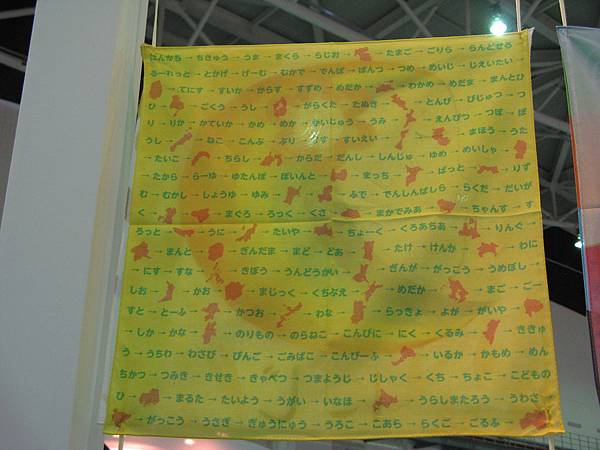 はんかち → ちきゅう → うま → まくら → らじお → → たまご → ごりら → らんどせる
るーれっと → とかげ → げーむ → むかで → でんぱ → ぱんつ → つめ → めいじ → じえいたい
→ てにす → すいか → からす → すずめ → めだか → → わかめ → めだま → まんとひ
ひ → → ごくう → うし → → がらくた → たぬき → → とんび → びじゅつ → つ
り → りか → かていか → かめ → めか → かいじゅう → うみ → → えんぴつ → つぼ → ぼ
うし → → ねこ → こんぶ → ぶり → りす → すいえい → → → まほう → うた
→ たいこ → → ちらし → → からだ → だんし → しんじゅ → ゆめ → めいしゃ →
→ たから → らーゆ → ゆたんぽ → ぽいんと → → まっち → → ばっと → → りず
む → むかし → しょうゆ → ゆみ → → → ふで → でんしんばしら → らくだ → だいが
く → → まぐろ → ろっく → くさ → → まかでみあ → → ちゃんす → す
ろっと → → うに → → たいや → → ちょーく → くろあちあ → → りんぐ →
→ まんと → → ぎんだま → まど → どあ → → たけ → けんか → → わに
→ にす → すな → → きぼう → うんどうかい → → ぎんが → がっこう → うめぼし
しお → → かお → → まじっく → くちぶえ → → めだか → → まご → ごー
すと → とーふ → → かつお → → わな → → らっきょ → よが → がいや →
→ しか → かな → → のりもの → のらねこ → こんびに → にく → くるみ → → ききゅ
う → うちわ → わさび → びんご → ごみばこ → こんびーふ → → いるか → かもめ → めん
ちかつ → つみき → きせき → きゃべつ → つまようじ → じしゃく → くち → ちょこ → こどもの
ひ → → まるた → たいよう → うがい → いなほ → → うらしまたろう → うわさ
→ がっこう → うさぎ → ぎゅうにゅう → うろこ → こあら → らくご → ごるふ →